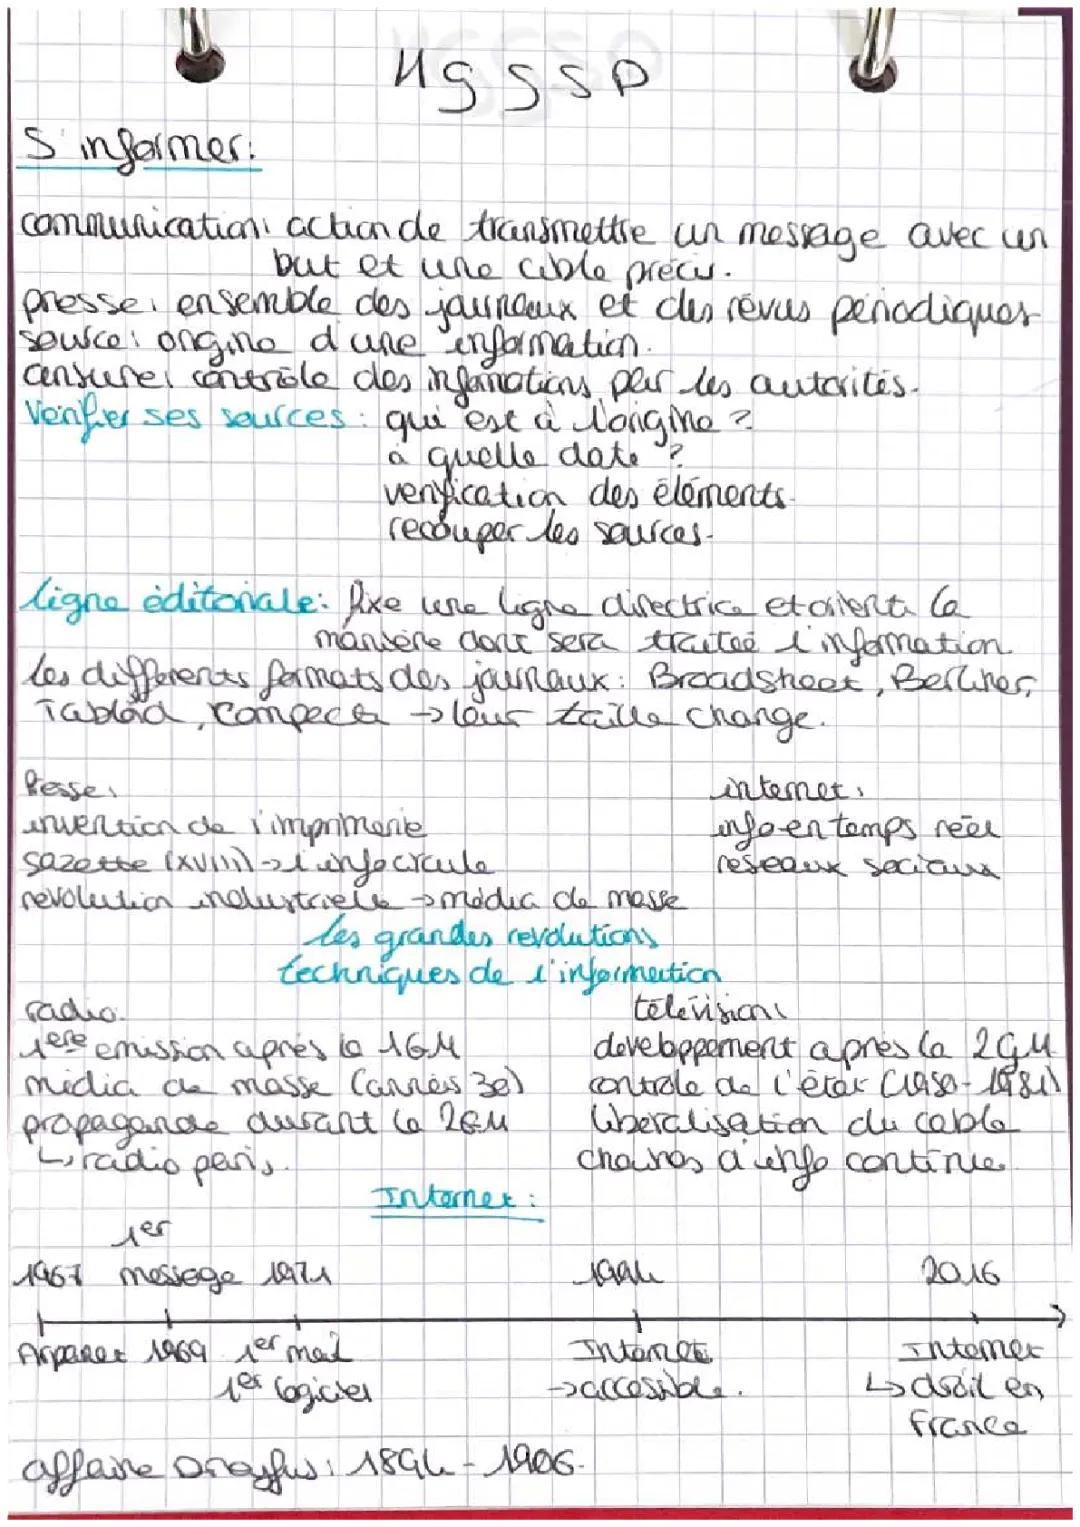 HGSSP
S'informer:
communication: action de transmettre un message avec un
but et une cible précis.
presse: ensemble des journaux et des révus périodiques
source: origine d'une information.
censure: contrôle des informations par les autorités.
Vérifier ses sources: qui est à l'origine?
à quelle date?
vérification des éléments.
recouper les sources.
ligne éditoriale: fixe une ligne directrice et orient la
manière dont sera traiteé l'information
les différents formats des journaux: Broadsheet, Berliner,
Tabloïd, compect → leur taille change.
Presse:
invention de l'imprimerie
gazette (XVIII) → l'info circule
révolution industrielle → média de masse
internet:
info en temps réel
réseaux sociaux
les grandes révolutions
techniques de l'information
radio.
1ere émission après la 1GM
média de masse (années 30)
propagande durant la 2GM
↳ radio paris.
télévision:
développement après la 2GM
controle de l'état (1950-1981)
libéralisation du cable
chaines d'info continue
Internet:
1er
1967 message 1971 1994 2016
Arpanet 1969 1er mail Internet Internet
1er logiciel → accessible. ↳ droit en
France
affaire Dreyfus: 1894 - 1906.